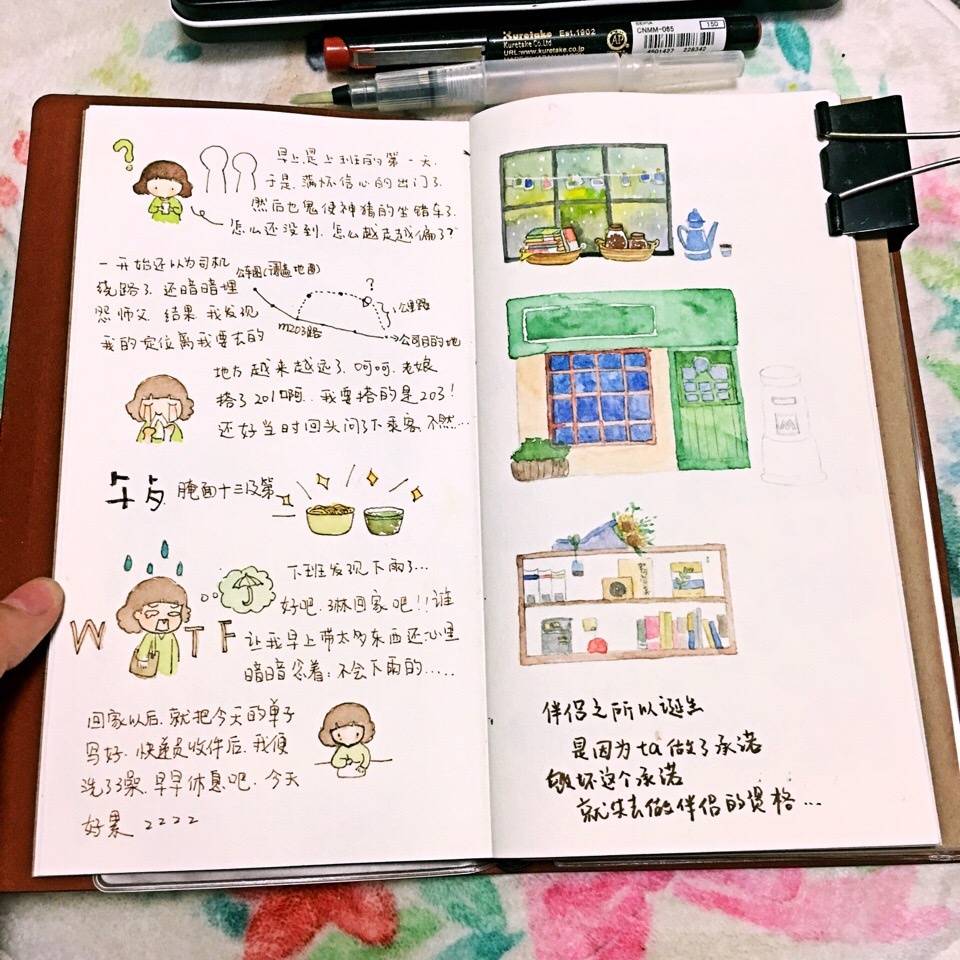 Kuretake Est.1902
Kuretake Co.Ltd
URL:www.kuretake.co.jp
AP
CNMM-065
150
4901427 228342
?
早上是上班的第一天.
于是.满怀信心的出门了.
然后也鬼使神猜的坐错车了.
怎么还没到.怎么越走越偏了?
一开始还以为司机
绕路了.还暗暗埋
怨师父.结果.我发现
我的定位离我要去的
公车图(词穷地图)
?
公里路
m203路
公司目的地
地方越来越远了.呵呵.老娘
搭了201啊..我要搭的是203!
还好当时回头问了下乘客.不然...
午与.腌面十三及第
下班发现下雨了...
好吧.淋回家吧!!谁
让我早上带太多东西还心里
暗暗念着:不会下雨的.....
W T F
回家以后.就把今天的单子
写好.快递员收件后.我便
洗了澡.早早休息吧.今天
好累 zzzz
伴侣之所以诞生
是因为ta做了承诺
破坏这个承诺
就失去做伴侣的资格...